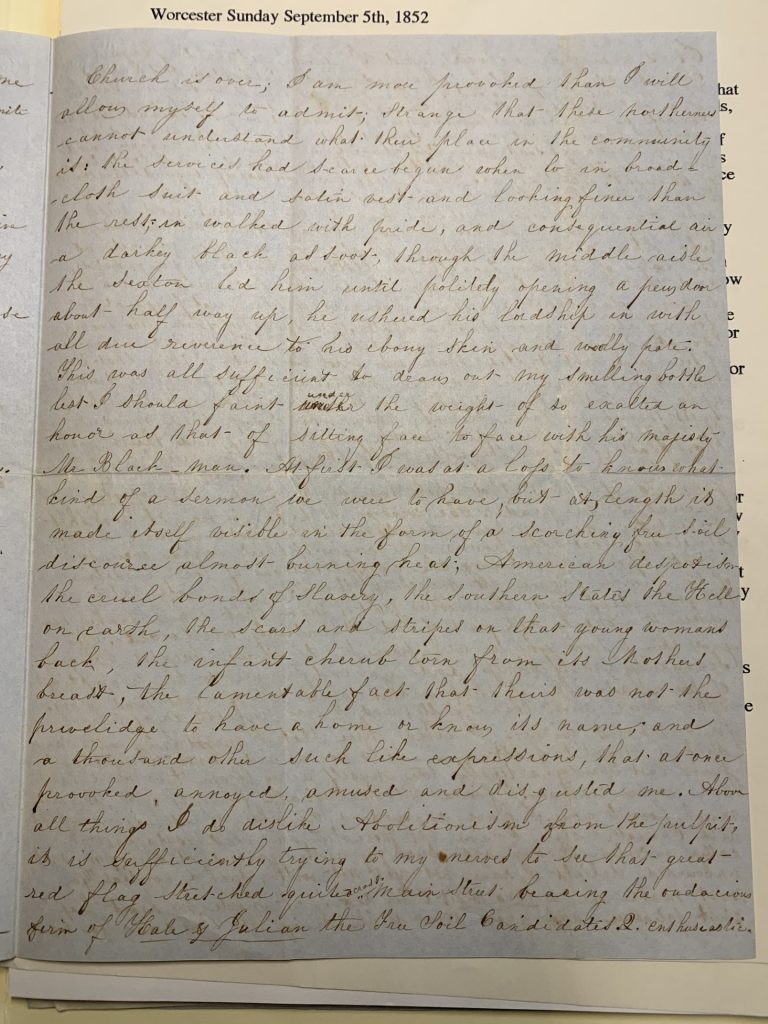 Worcester Sunday September 5th, 1852
Church is over; I am more provoked than I will
allow myself to admit; strange that these northerners
cannot understand what their place in the community
is: the services had scarce begun when lo in broad-
-cloth suit and satin vest and looking finer than
the rest; in walked with pride, and consequential air
a darkey black as soot, through the middle aisle
the sexton led him until politely opening a pew door
about half way up, he ushered his lordship in with
all due reverence to his ebony skin and woolly pate.
This was all sufficient to draw out my smelling bottle
lest I should faint under the weight of so exalted an
honor as that of sitting face to face with his majesty
Mr Black-man. At first I was at a loss to know what
kind of a sermon we were to have, but at length it
made itself visible in the form of a scorching free soil
discourse almost burning heat; American despotism
the cruel bonds of Slavery, the southern States the Hell
on earth, the scars and stripes on that young womans
back, the infant cherub torn from its Mothers
breast, the lamentable fact that theirs was not the
privelidge to have a home or know its name; and
a thousand other such like expressions, that at once
provoked, annoyed, amused and disgusted me. Above
all things I do dislike Abolitionism from the pulpit,
it is sufficiently trying to my nerves to see that great
red flag stretched quite across Main Street bearing the audacious
firm of Hale & Julian the Free Soil Candidates. enthusiastic.